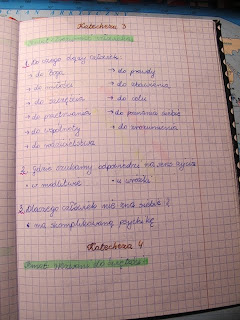 Katecheza 3
1. Do czego dąży człowiek:
• do Boga • do prawdy
• do miłości • do zbawienia
• do szczęścia • do celu
• do poznawania • do poznania siebie
• do wspólnoty • do zrozumienia
• do macierzyństwa
2. Gdzie szukamy odpowiedzi na sens życia
• w modlitwie • w wierze
3. Dlaczego człowiek nie zna siebie?
• ma skomplikowaną psychikę
Katecheza 4